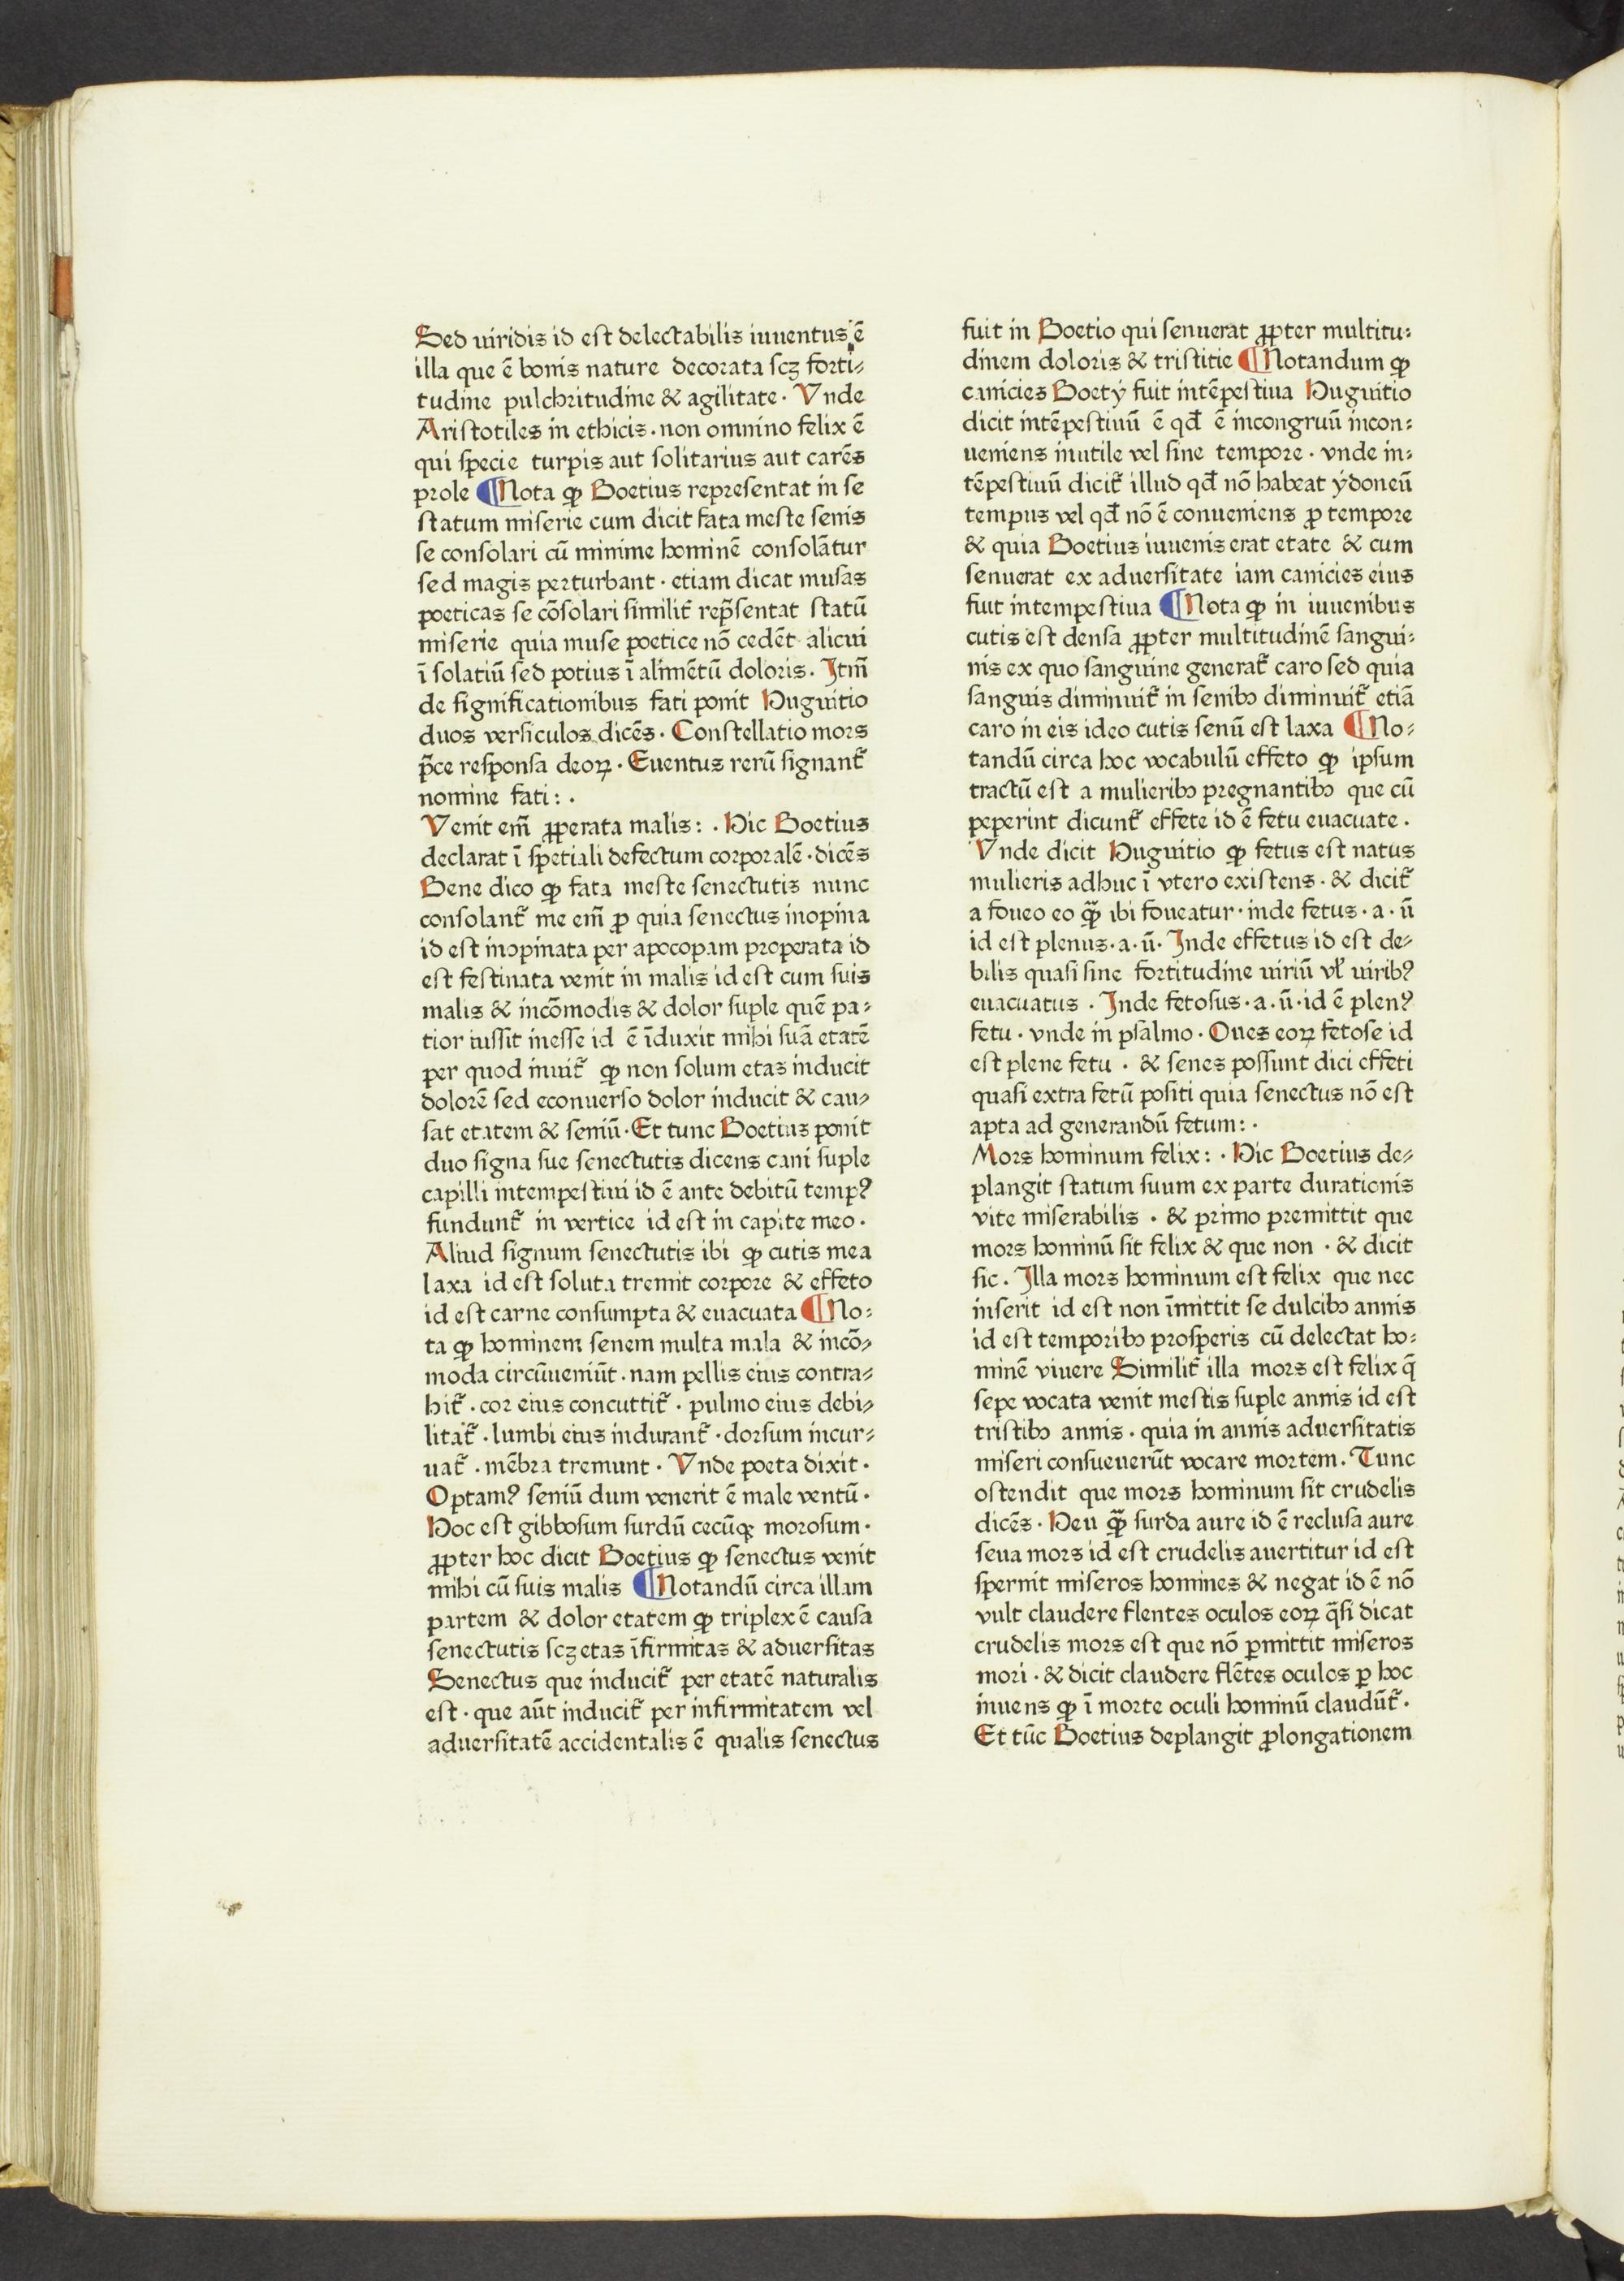 Sed uiridis id est delectabilis iuuentus ē
illa que ē bonis nature decorata scꝫ forti-
tudine pulchritudine & agilitate. Vnde
Aristotiles in ethicis. non omnino felix ē
qui specie turpis aut solitarius aut carēs
prole ¶Nota ꝙ Boetius representat in se
statum miserie cum dicit fata meste senis
se consolari cū minime hominē consolātur
sed magis perturbant. etiam dicat musas
poeticas se cōsolari similit᷑ rep̄sentat statū
miserie quia muse poetice nō cedēt alicui
ī solatiū sed potius ī alimētū doloris. Itm̄
de significationibus fati ponit Huguitio
duos versiculos dicēs. Constellatio mors
p̄ce responsa deoꝝ. Euentus rerū signant᷑
nomine fati:.
Venit em̄ ꝓperata malis:. Hic Boetius
declarat ī spetiali defectum corporalē. dicēs
Bene dico ꝙ fata meste senectutis nunc
consolant᷑ me em̄ ꝓ quia senectus inopina
id est inopinata per apocopam properata id
est festinata venit in malis id est cum suis
malis & incōmodis & dolor suple quē pa-
tior iussit inesse id ē īduxit mihi suā etatē
per quod inuit᷑ ꝙ non solum etas inducit
dolorē sed econuerso dolor inducit & cau-
sat etatem & seniū. Et tunc Boetius ponit
duo signa sue senectutis dicens cani suple
capilli intempestiui id ē ante debitū tempꝰ
fundunt᷑ in vertice id est in capite meo.
Aliud signum senectutis ibi ꝙ cutis mea
laxa id est soluta tremit corpore & effeto
id est carne consumpta & euacuata ¶No-
ta ꝙ hominem senem multa mala & incō-
moda circūueniūt. nam pellis eius contra-
hit᷑. cor eius concuttit᷑. pulmo eius debi-
litat᷑. lumbi eius indurant᷑. dorsum incur-
uat᷑. mēbra tremunt. Vnde poeta dixit.
Optamꝰ seniū dum venerit ē male ventū.
Hoc est gibbosum surdū cecūqꝫ morosum.
ꝓpter hoc dicit Boetius ꝙ senectus venit
mihi cū suis malis ¶Notandū circa illam
partem & dolor etatem ꝙ triplex ē causa
senectutis scꝫ etas īfirmitas & aduersitas
Senectus que inducit᷑ per etatē naturalis
est. que aūt inducit᷑ per infirmitatem vel
aduersitatē accidentalis ē qualis senectus
fuit in Boetio qui senuerat ꝓpter multitu-
dinem doloris & tristitie ¶Notandum ꝙ
canicies Boetÿ fuit intēpestiua Huguitio
dicit intēpestiuū ē qd̄ ē incongruū incon-
ueniens inutile vel sine tempore. vnde in-
tēpestiuū dicit᷑ illud qd̄ nō habeat ydoneū
tempus vel qd̄ nō ē conueniens ꝓ tempore
& quia Boetius iuuenis erat etate & cum
senuerat ex aduersitate iam canicies eius
fuit intempestiua ¶Nota ꝙ in iuuenibus
cutis est densa ꝓpter multitudinē sangui-
nis ex quo sanguine generat᷑ caro sed quia
sanguis diminuit᷑ in senibꝫ diminuit᷑ etiā
caro in eis ideo cutis senū est laxa ¶No-
tandū circa hoc vocabulū effeto ꝙ ipsum
tractū est a mulieribꝫ pregnantibꝫ que cū
peperint dicunt᷑ effete id ē fetu euacuate.
Vnde dicit Huguitio ꝙ fetus est natus
mulieris adhuc ī vtero existens. & dicit᷑
a foueo eo ꝙ̄ ibi foueatur. inde fetus. a. ū
id est plenus. a. ū. Inde effetus id est de-
bilis quasi sine fortitudine uiriū vl̄ uiribꝰ
euacuatus. Inde fetosus. a. ū. id ē plenꝰ
fetu. vnde in psalmo. Oues eoꝝ fetose id
est plene fetu. & senes possunt dici effeti
quasi extra fetū positi quia senectus nō est
apta ad generandū fetum:.
Mors hominum felix:. Hic Boetius de-
plangit statum suum ex parte durationis
vite miserabilis. & primo premittit que
mors hominū sit felix & que non. & dicit
sic. Illa mors hominum est felix que nec
inserit id est non īmittit se dulcibꝫ annis
id est temporibꝫ prosperis cū delectat ho-
minē viuere Similit᷑ illa mors est felix q̄
sepe vocata venit mestis suple annis id est
tristibꝫ annis. quia in annis aduersitatis
miseri consueuerūt vocare mortem. Tunc
ostendit que mors hominum sit crudelis
dicēs. Heu ꝙ̄ surda aure id ē reclusa aure
seua mors id est crudelis auertitur id est
spernit miseros homines & negat id ē nō
vult claudere flentes oculos eoꝝ q̄si dicat
crudelis mors est que nō ꝑmittit miseros
mori. & dicit claudere flētes oculos ꝑ hoc
inuens ꝙ ī morte oculi hominū claudūt᷑.
Et tūc Boetius deplangit ꝓlongationem